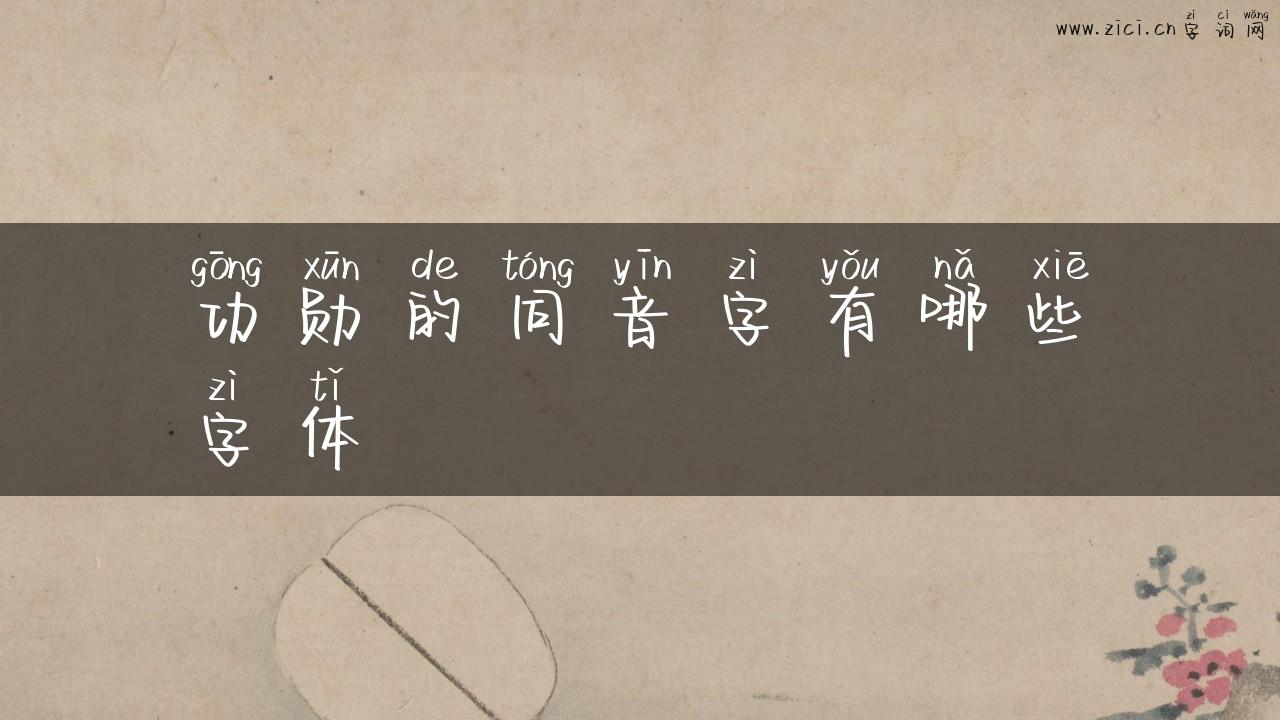 zì cí wǎng
www.zici.cn 字词网
gōng xūn de tóng yīn zì yǒu nǎ xiē
功勋的同音字有哪些
zì tǐ
字体